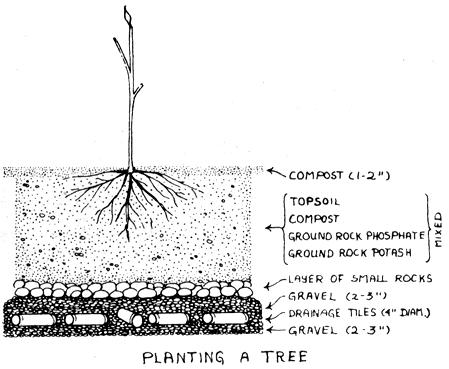 COMPOST (1-2")
TOPSOIL
COMPOST
GROUND ROCK PHOSPHATE
GROUND ROCK POTASH
MIXED
LAYER OF SMALL ROCKS
GRAVEL (2-3")
DRAINAGE TILES (4" DIAM.)
GRAVEL (2-3")
PLANTING A TREE